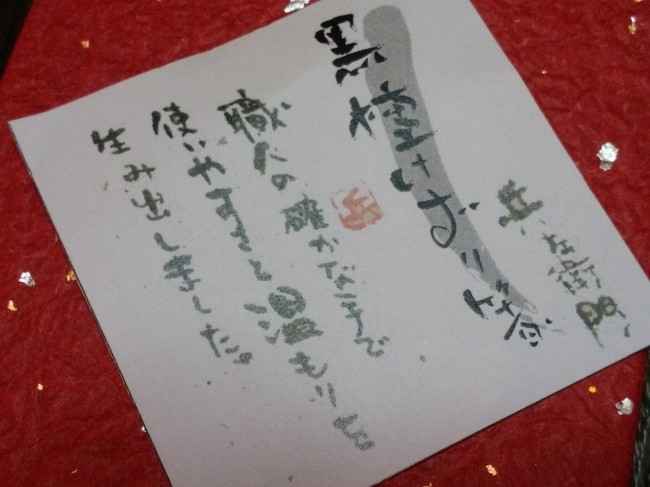 兵左衛門
黒檀けずり箸
職人の確かな手で
使いやすさと温もりを
生み出しました。